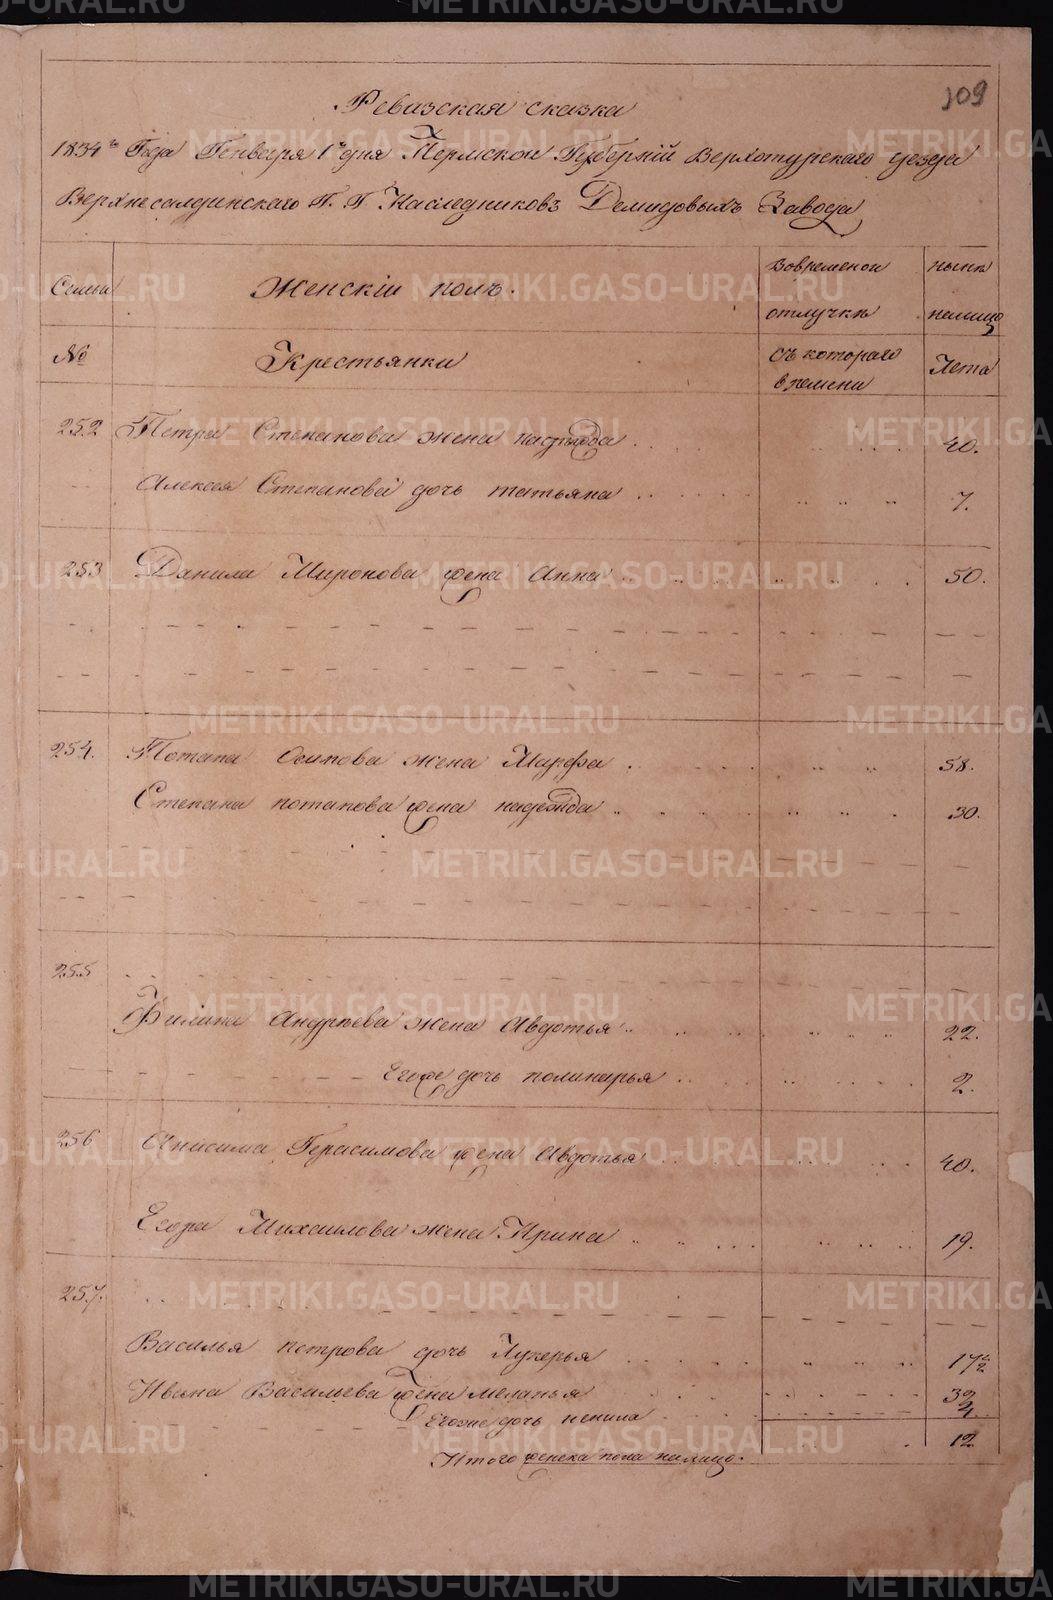 109
Ревизская сказка
1834го Года Генваря 1го дня Пермской Губернiй Верхотурскаго уезда
Верхнесалдинскаго Г. Г. Наследниковъ Демидовыхъ Завода
Семьи Женскiй полъ. Вовременой отлучкѣ ныни налицо
№ Крестьянки съ котораго времени Лета
252 Петра Степанова жена надежда 40.
Алексея Степанова дочь татьяна 7.
253 Данила Миронова жена Анна 50.
254. Потапа Осипова жена Марфа 58.
Степана потапова жена надежда 30.
255
Филипа Андрѣева жена Авдотья 22.
Егоже дочь полинарья 2.
256 Анисима Герасимова жена Авдотья 40.
Егора Михаилова жена Ирина 19.
257.
Василья петрова дочь Лукерья 17 1/2
Ивана Васильева жена меланья 32
Егоже дочь ненила 4.
Итого женска пола налицо. 12
METRIKI.GASO-URAL.RU